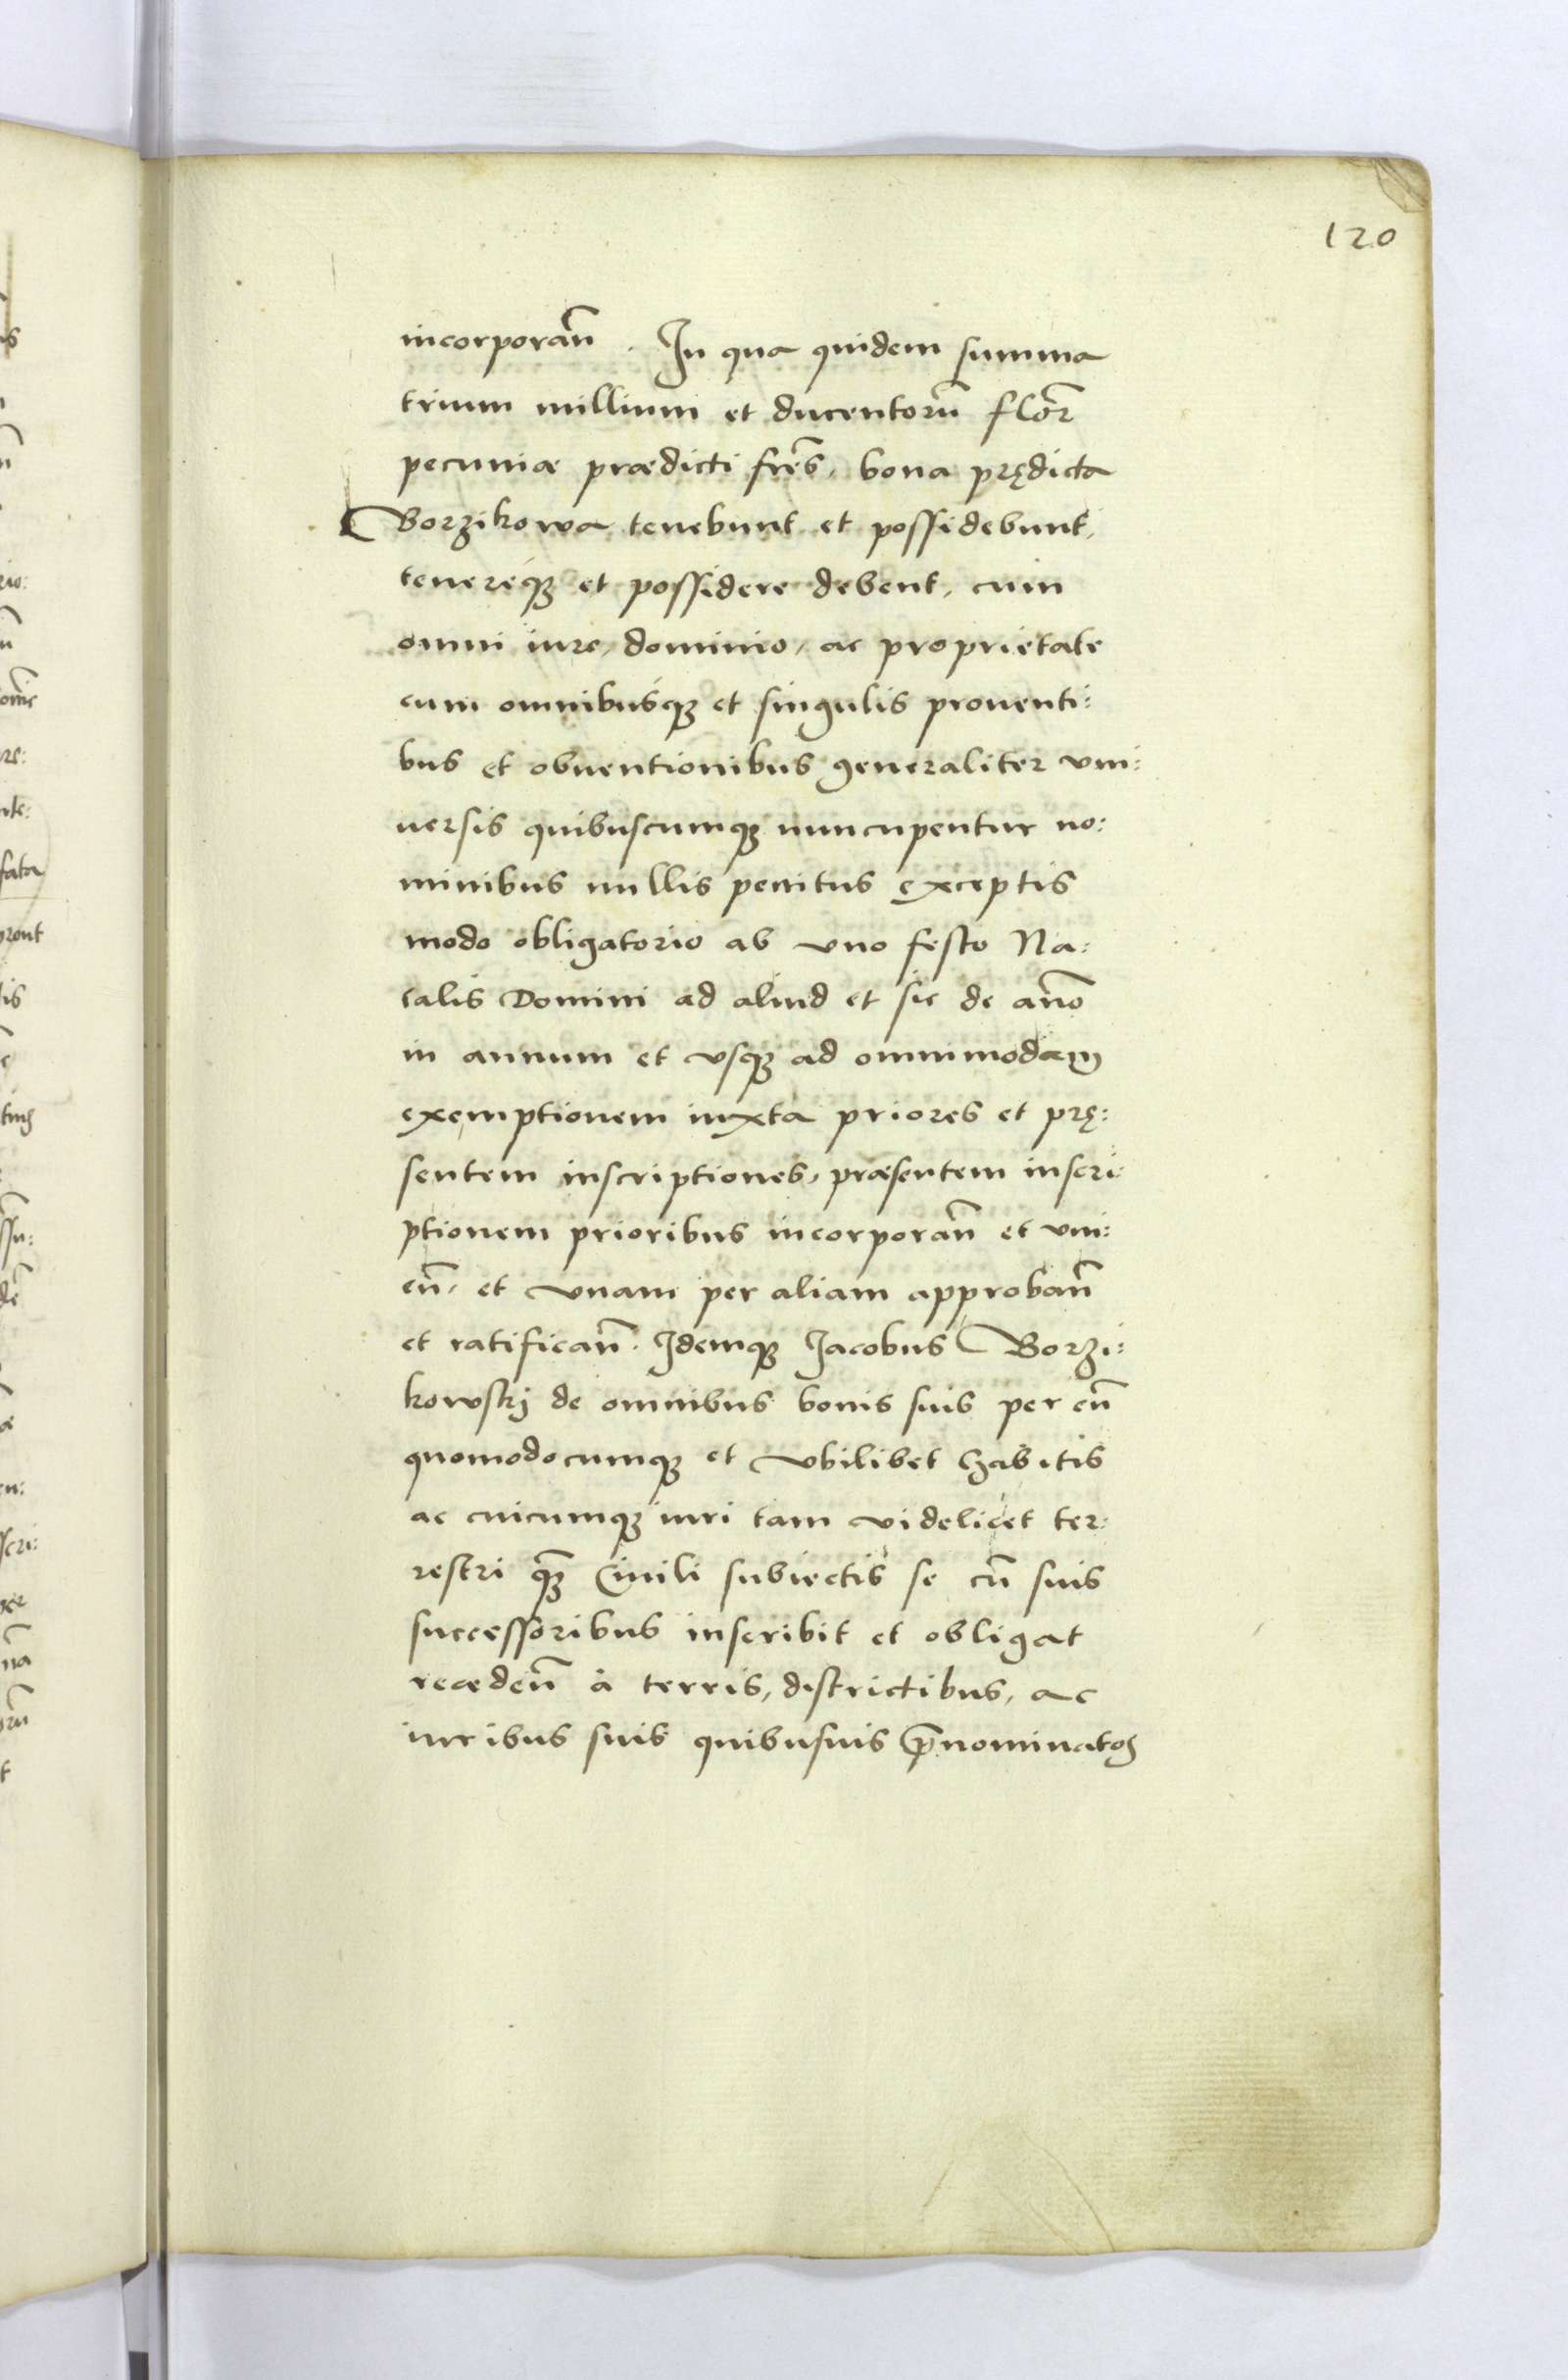 120
incorporañ. In qua quidem summa
trium millium et ducentorũ flor̃
pecuniæ prædicti fr̃es, bona prędicta
Borzikowa tenebunt et possidebunt,
tenereq́ꝫ et possidere debent, cum
omni iure, dominio, ac proprietate
cum omnibusq́ꝫ et singulis prouenti:
bus et obuentionibus generaliter vni:
uersis quibuscumqꝫ nuncupentur no:
minibus nullis penitus exceptis
modo obligatorio ab vno festo Na:
talis Domini ad aliud et sic de año
in annum et vsqꝫ ad omnimodam
exemptionem iuxta priores et prę:
sentem inscriptiones, præsentem inscri:
ptionem prioribus incorporañ et vni:
eñ, et vnam per aliam approbañ
et ratificañ. Idemqꝫ Jacobus Borzi:
kowskj de omnibus bonis suis per eũ
quomodocumqꝫ et vbilibet habitis
ac cuicumqꝫ iuri tam videlicet ter:
restri qꝫ̃ Ciuili subiectis se cũ suis
successoribus inscribit et obligat
recedeñ à terris, districtibus, ac
iuribus suis quibusuis p̃nominatoꝝ